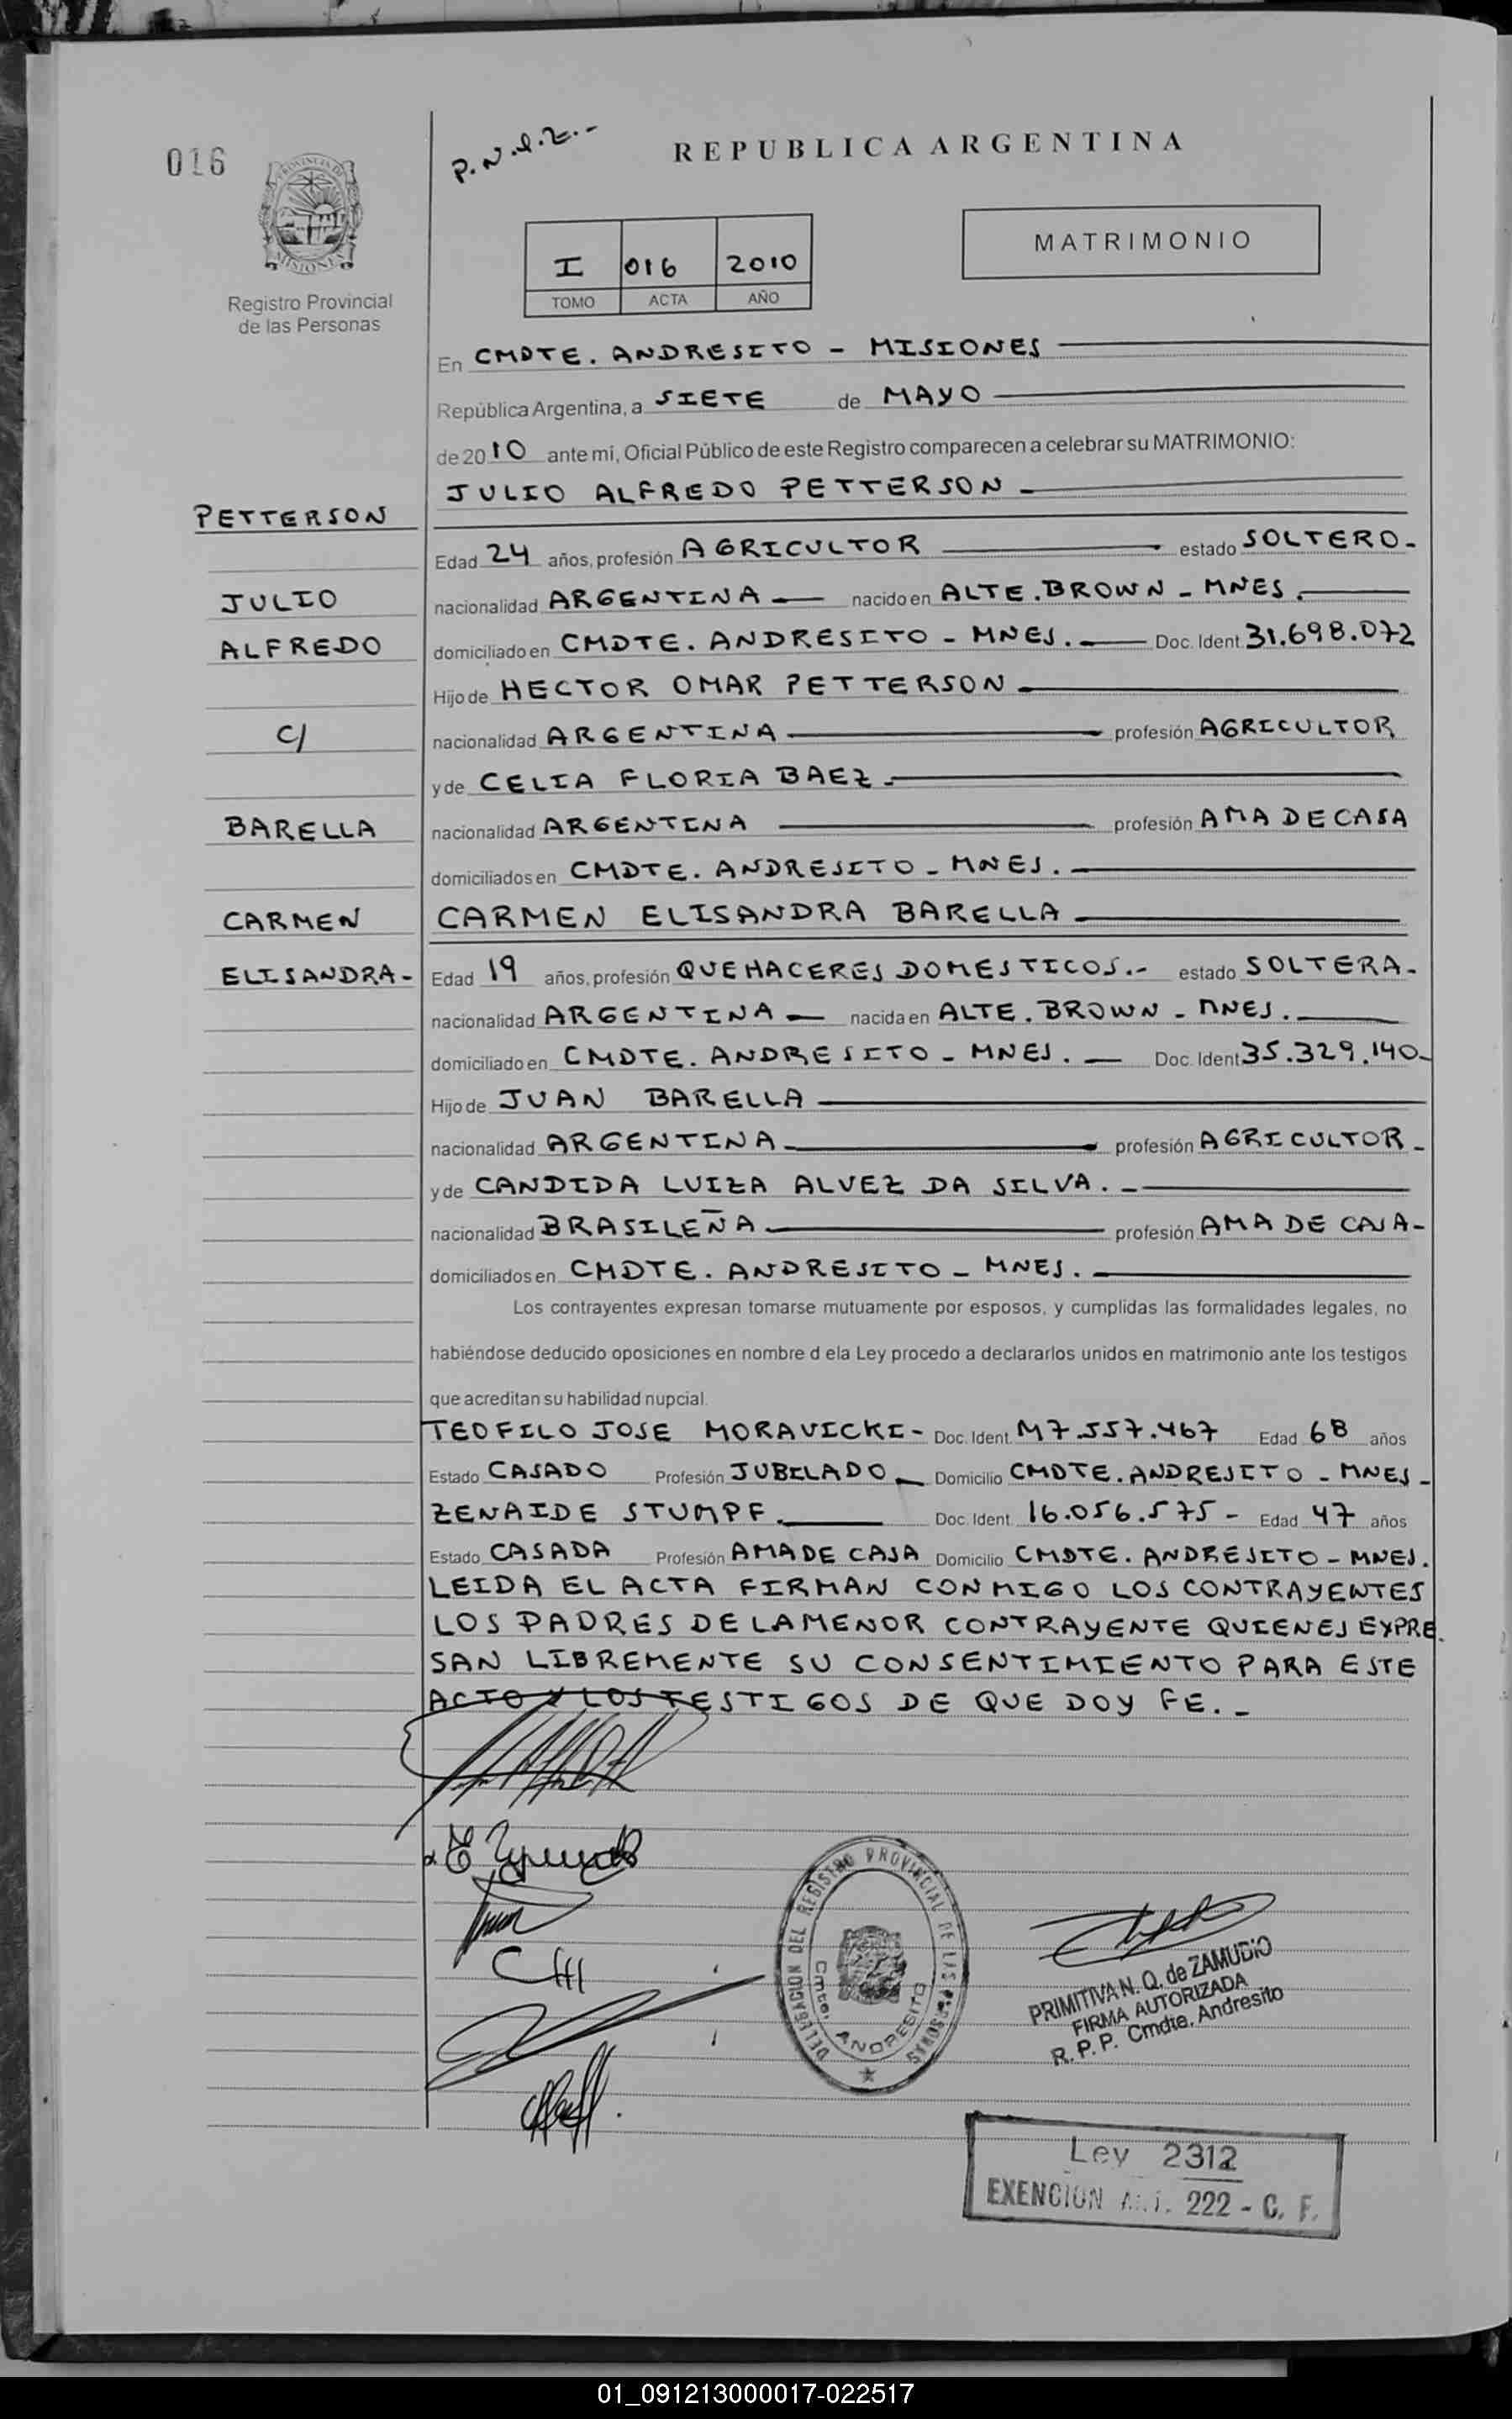 016
P.N.Q.Z.-
REPUBLICA ARGENTINA
PROVINCIA DE MISIONES
Registro Provincial
de las Personas
I 016 2010
TOMO ACTA AÑO
MATRIMONIO
En CMDTE. ANDRESITO - MISIONES
República Argentina, a SIETE de MAYO
de 2010 ante mi, Oficial Público de este Registro comparecen a celebrar su MATRIMONIO:
JULIO ALFREDO PETTERSON -
PETTERSON
Edad 24 años, profesión AGRICULTOR estado SOLTERO-
JULIO
nacionalidad ARGENTINA nacido en ALTE. BROWN - MNES.
ALFREDO
domiciliado en CMDTE. ANDRESITO - MNES. Doc. Ident. 31.698.072
Hijo de HECTOR OMAR PETTERSON
C/
nacionalidad ARGENTINA profesión AGRICULTOR
y de CELIA FLORIA BAEZ
BARELLA
nacionalidad ARGENTINA profesión AMA DE CASA
domiciliados en CMDTE. ANDRESITO - MNES.
CARMEN
CARMEN ELISANDRA BARELLA
ELISANDRA-
Edad 19 años, profesión QUEHACERES DOMESTICOS.- estado SOLTERA-
nacionalidad ARGENTINA nacida en ALTE. BROWN - MNES.
domiciliado en CMDTE. ANDRESITO - MNES. Doc. Ident 35.329.140-
Hijo de JUAN BARELLA
nacionalidad ARGENTINA profesión AGRICULTOR-
y de CANDIDA LUIZA ALVEZ DA SILVA. -
nacionalidad BRASILEÑA profesión AMA DE CASA-
domiciliados en CMDTE. ANDRESITO - MNES.
Los contrayentes expresan tomarse mutuamente por esposos, y cumplidas las formalidades legales, no
habiéndose deducido oposiciones en nombre d ela Ley procedo a declararlos unidos en matrimonio ante los testigos
que acreditan su habilidad nupcial.
TEOFILO JOSE MORAVICKI- Doc. Ident. M7.557.467 Edad 68 años
Estado CASADO Profesión JUBILADO Domicilio CMDTE. ANDRESITO - MNES-
ZENAIDE STUMPF. Doc. Ident. 16.056.575- Edad 47 años
Estado CASADA Profesión AMA DE CASA Domicilio CMDTE. ANDRESITO - MNES.
LEIDA EL ACTA FIRMAN CONMIGO LOS CONTRAYENTES
LOS PADRES DE LA MENOR CONTRAYENTE QUIENES EXPRE
SAN LIBREMENTE SU CONSENTIMIENTO PARA ESTE
ACTO Y LOS TESTIGOS DE QUE DOY FE. -
DELEGACION DEL REGISTRO PROVINCIAL DE LAS PERSONAS
Cmte. ANDRESITO
PRIMITIVA N. Q. de ZAMUDIO
FIRMA AUTORIZADA
R. P. P. Cmdte. Andresito
Ley 2312
EXENCION Art. 222 - C. F.
01_091213000017-022517